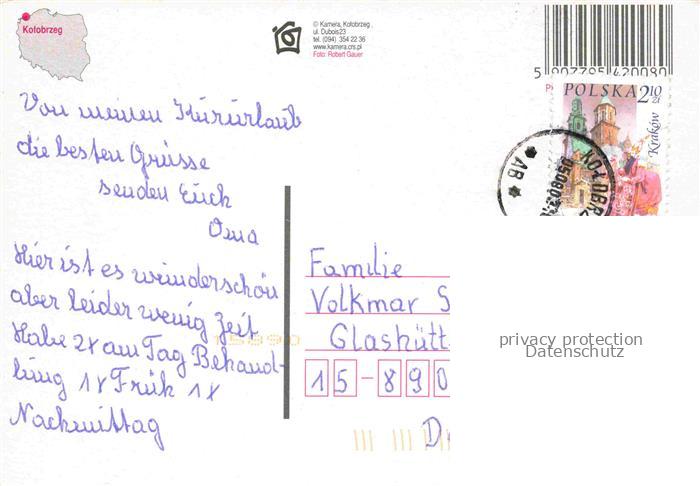 Kołobrzeg
© Kamera, Kołobrzeg
ul. Dubois23
tel. (094) 354 22 36
www.kamera.crs.pl
Foto: Robert Gauer
5 907795 420080
POLSKA 2,10 zł
Kraków
Von meinen Kürürlaub
die besten Grüsse
senden Euch
Oma
Hier ist es wünderschön
aber leider wenig Zeit
Habe 2x am Tag Behand-
lüng 1x Früh 1x
Nachmittag
15890
Familie
Volkmar S
Glashütt
15-890
D
privacy protection
Datenschutz